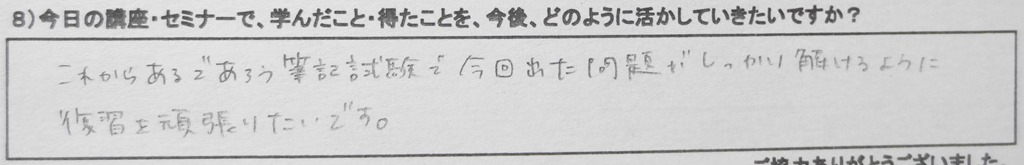 8)今日の講座・セミナーで、学んだこと・得たことを、今後、どのように活かしていきたいですか？
これからあるであろう筆記試験で今回出た問題がしっかり解けるように
復習を頑張りたいです。
ご協力ありがとうございました。